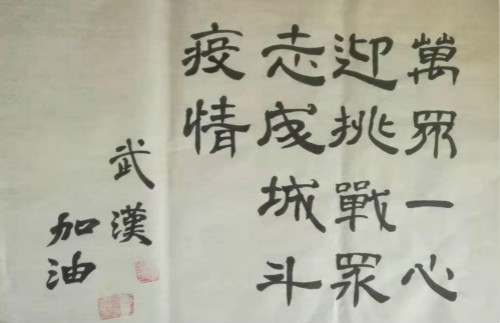 萬眾一心
迎挑戰眾
志成城斗
疫情
武漢
加油